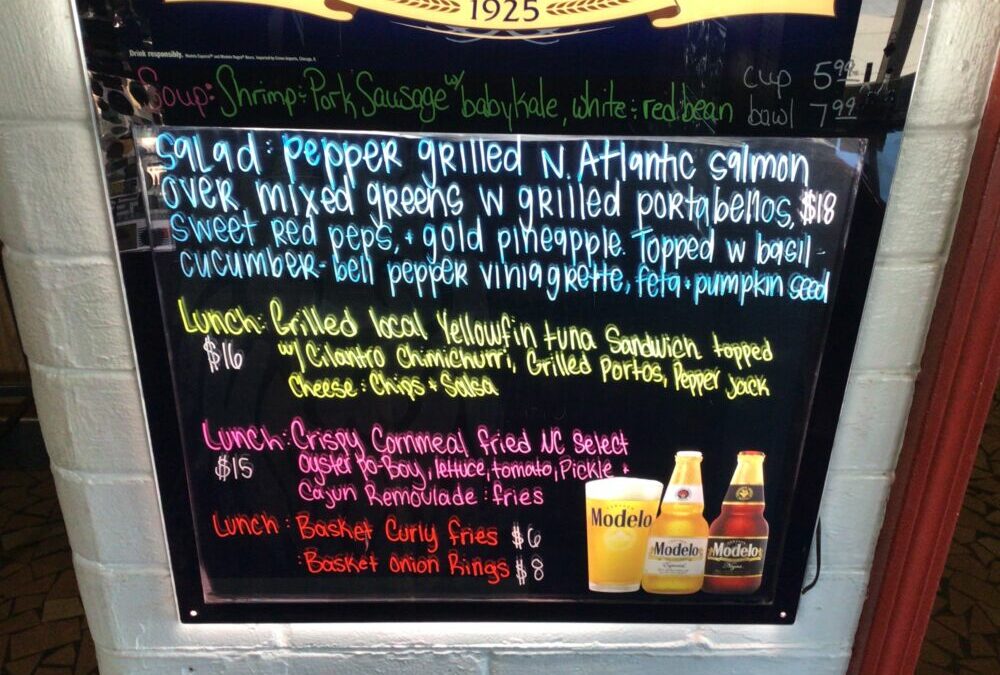 1925
Drink responsibly.
Soup: Shrimp + Pork Sausage w/ baby kale, white + red bean cup 5.99
bowl 7.99
Salad: pepper grilled N. Atlantic salmon
over mixed greens w grilled portabellos, $18
sweet red peps, + gold pineapple. Topped w basil-
cucumber-bell pepper viniagrette, feta + pumpkin seed
Lunch: Grilled local Yellowfin tuna Sandwich topped
$16 w/ Cilantro Chimichurri, Grilled Portos, Pepper Jack
Cheese: Chips + Salsa
Lunch: Crispy Cornmeal fried NC Select
$15 oyster Po-Boy, lettuce, tomato, Pickle +
Cajun Remoulade: fries
Lunch: Basket Curly fries $6
: Basket Onion Rings $8
Modelo
Modelo
Especial
Modelo
Negra